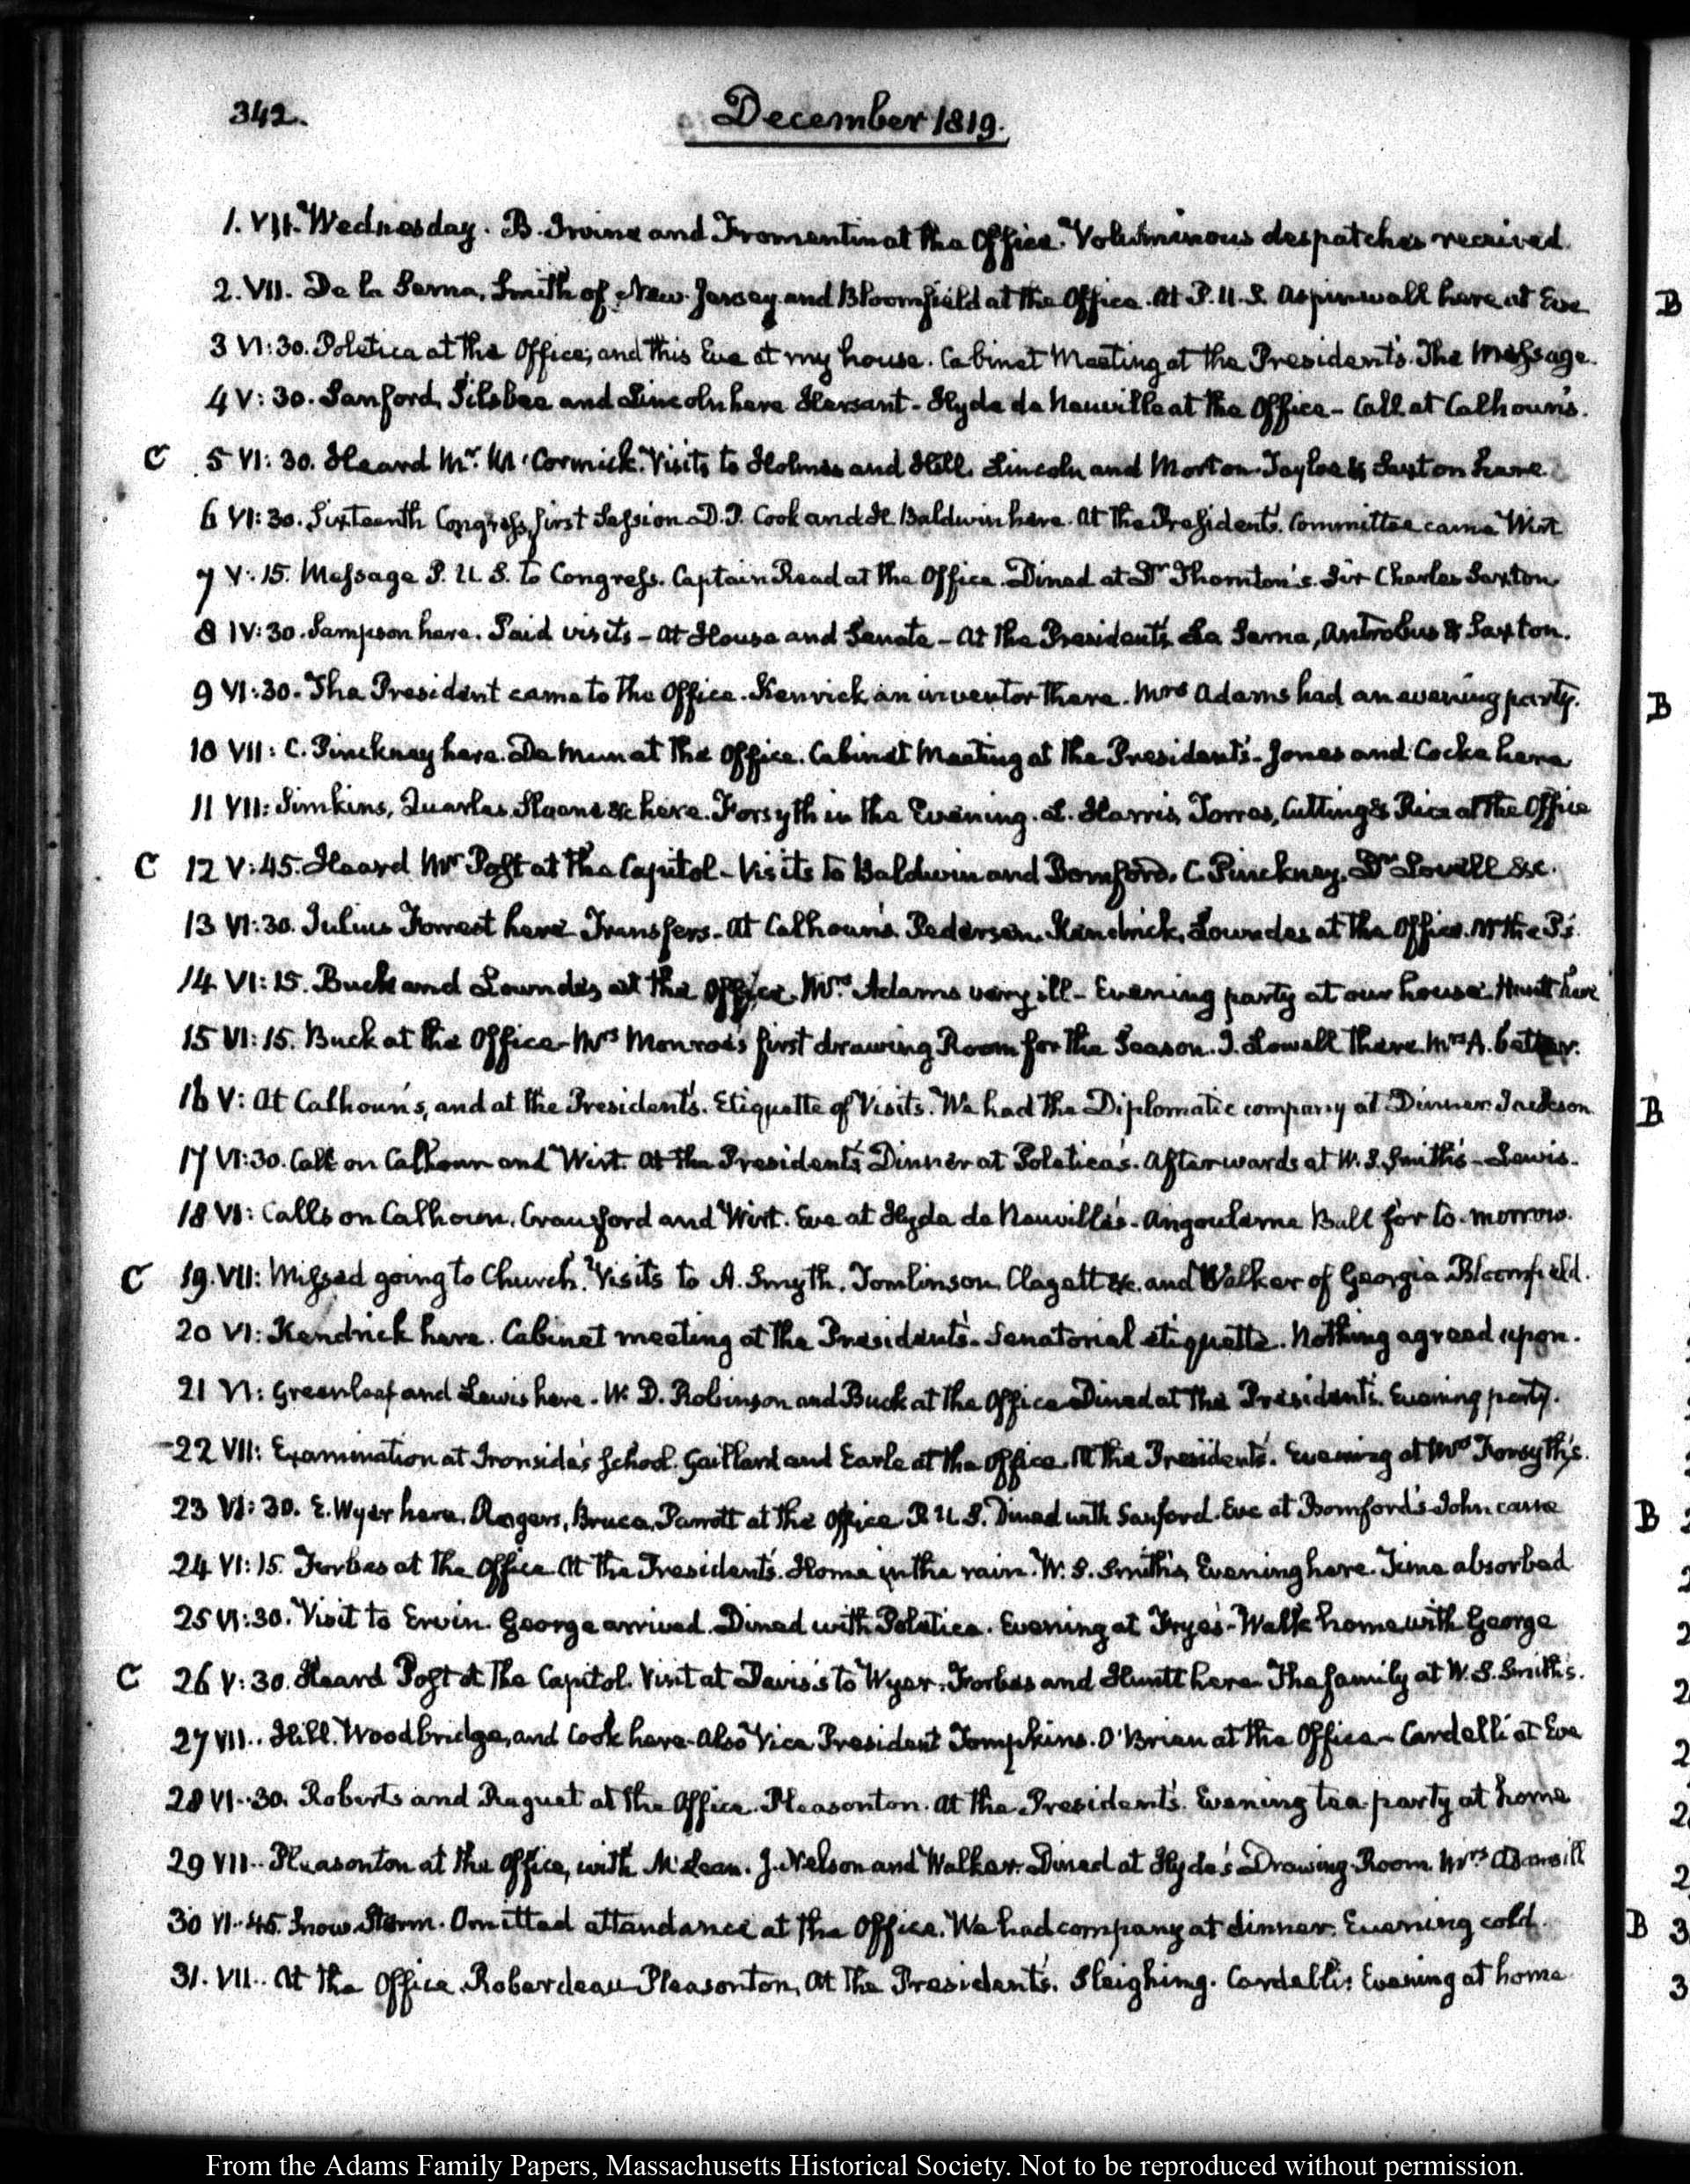 342.
December 1819.
1. VII. Wednesday. B. Irvine and Fromentin at the Office. Voluminous despatches received.
2. VII. De la Serna, Smith of New-Jersey and Bloomfield at the Office. At P. U. S. Aspinwall here at Eve
3 VI:30. Poletica at the Office, and this Eve at my house. Cabinet Meeting at the President's. The Message.
4 V:30. Sanford, Silsbee and Lincoln here Hersant - Hyde de Neuville at the Office - Call at Calhoun's.
C 5 VI:30. Heard Mr. McCormick. Visits to Holmes and Hill. Lincoln and Morton. Tayloe & Saxton here.
6 VI:30. Sixteenth Congress, first Session. D. P. Cook and H Baldwin here. At the President's. Committee came Wirt
7 V:15. Message P. U. S. to Congress. Captain Read at the Office. Dined at Dr Thornton's. Sir Charles Saxton.
8 IV:30. Sampson here. Paid visits - At House and Senate - At the President's La Serna, Antrobus & Saxton.
9 VI:30. The President came to the Office. Kenrick an inventor there. Mrs Adams had an evening party.
10 VII: C. Pinckney here. De Mun at the Office. Cabinet Meeting at the President's. Jones and Cocke here
11 VII: Simkins, Quarles, Sloane &c here. Forsyth in the Evening. L. Harris, Torres, Cutting & Rice at the Office
C 12 V:45. Heard Mr Post at the Capitol - Visits to Baldwin and Bomford, C. Pinckney, Dr Lovell &c.
13 VI:30. Julius Forrest here Transfers - At Calhoun's Pedersen, Kendrick, Lowndes at the Office. At the P's
14 VI:15. Buck and Lowndes at the Office. Mrs Adams very ill - Evening party at our house. Huntt here
15 VI:15. Buck at the Office - Mrs Monroe's first drawing Room for the Season. J. Lowell there. Mrs A. better.
16 V: At Calhoun's, and at the President's. Etiquette of Visits. We had the Diplomatic company at Dinner. Jackson
17 VI:30. Call on Calhoun and Wirt. At the President's Dinner at Poletica's. Afterwards at W. S. Smith's - Lewis.
18 VI: Calls on Calhoun, Crawford and Wirt. Eve at Hyde de Neuville's. Angouleme Ball for to-morrow.
C 19. VII: Missed going to Church. Visits to A. Smyth, Tomlinson, Clagett &c. and Walker of Georgia Bloomfield.
20 VI: Kendrick here. Cabinet meeting at the President's. Senatorial etiquette. Nothing agreed upon.
21 VI: Greenleaf and Lewis here. W. D. Robinson and Buck at the Office Dined at the President's. Evening party.
22 VII: Examination at Ironside's School. Gaillard and Earle at the Office. At the President's. Evening at Mrs Forsyth's.
23 VI:30. E. Wyer here. Rogers, Bruce, Parrott at the Office P. U. S. Dined with Sanford. Eve at Bomford's John came
24 VI:15. Forbes at the Office At the President's. Home in the rain. W. S. Smith's, Evening here. Time absorbed
25 VI:30. Visit to Ervin. George arrived. Dined with Poletica. Evening at Frye's - Walk home with George
C 26 V:30. Heard Post at the Capitol. Visit at Davis's to Wyer. Forbes and Huntt here. The family at W. S. Smith's.
27 VII.. Hill, Woodbridge, and Cook here. Also Vice President Tompkins. O'Brien at the Office - Cardelli at Eve
28 VI..30. Roberts and Raguet at the Office. Pleasonton. At the President's. Evening tea party at home
29 VII.. Pleasonton at the Office, with McLean. J. Nelson and Walker. Dined at Hyde's Drawing-Room. Mrs Adams ill
30 VI..45. Snow Storm. Omitted attendance at the Office. We had company at dinner. Evening cold.
31. VII.. At the Office. Roberdeau Pleasonton, At the President's. Sleighing. Cardelli: Evening at home
From the Adams Family Papers, Massachusetts Historical Society. Not to be reproduced without permission.